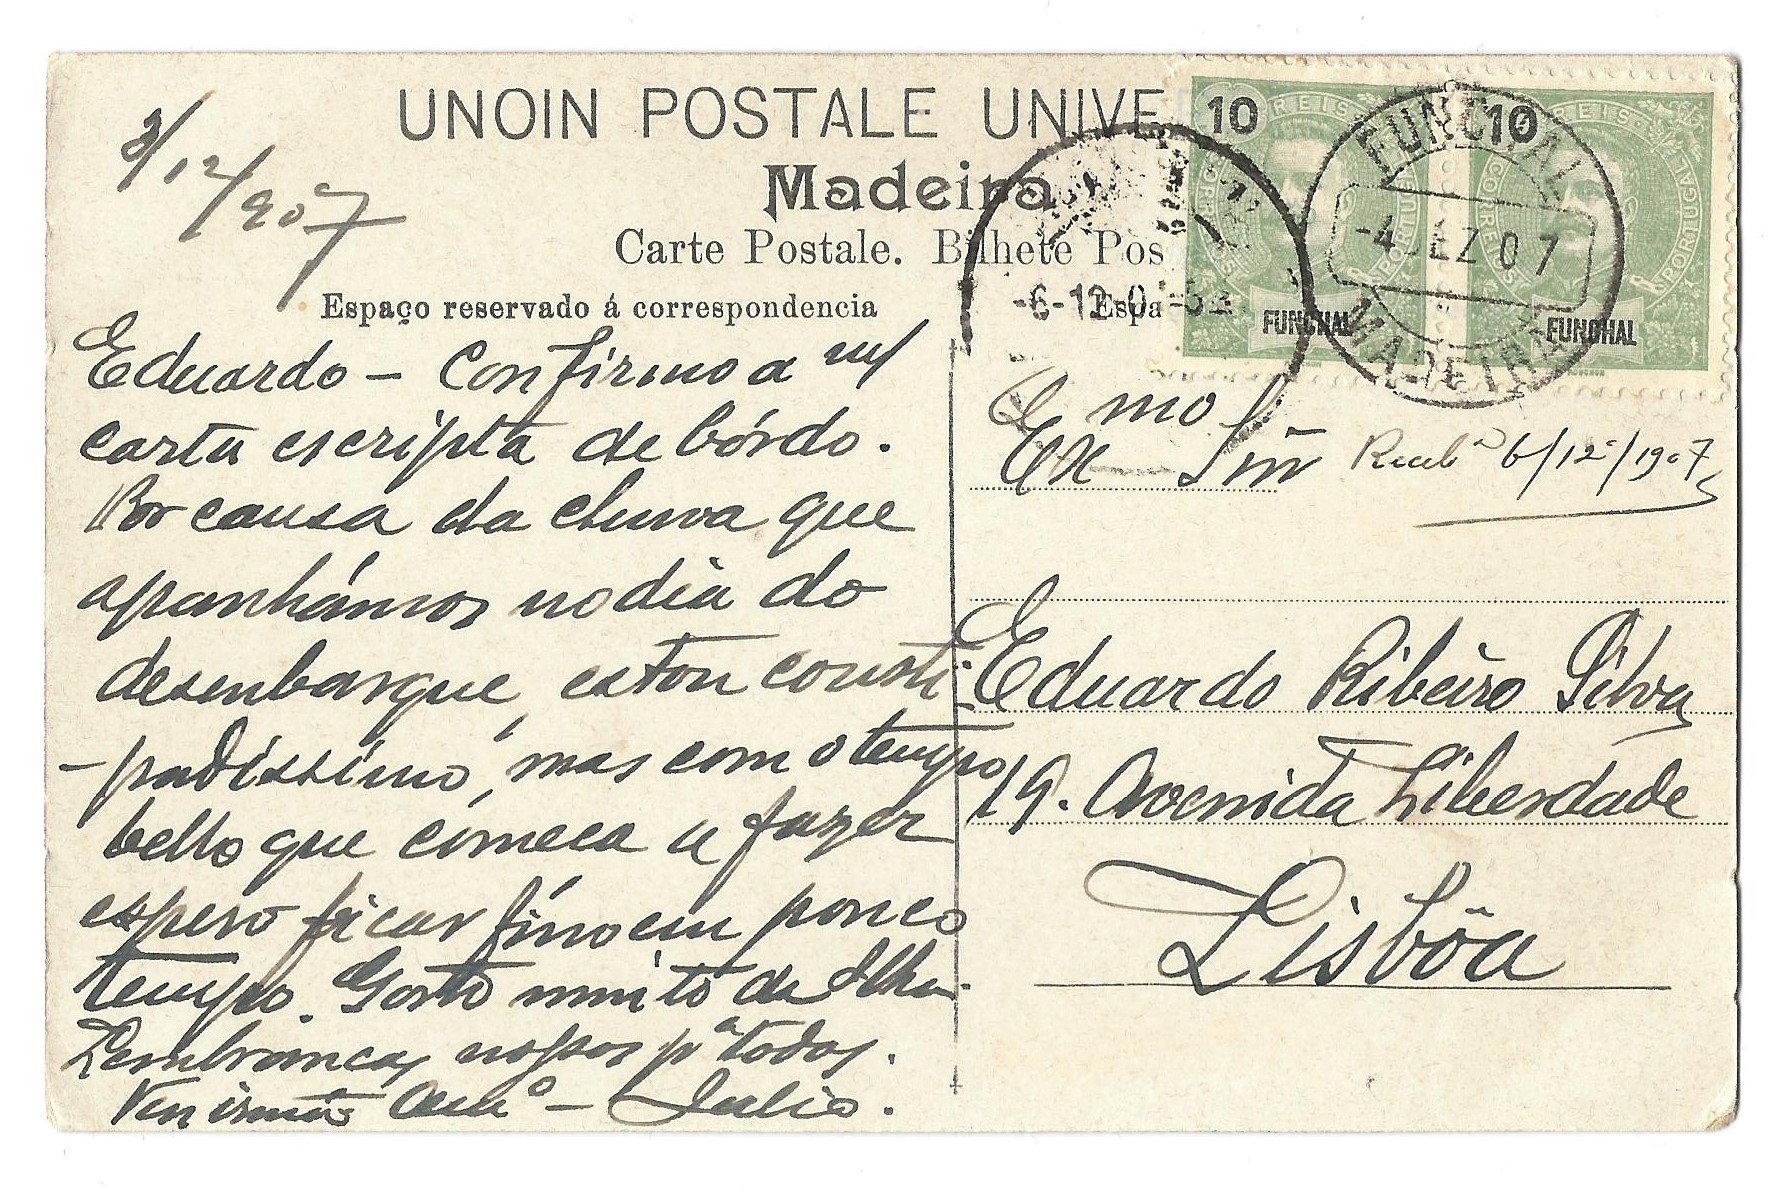 3/12/907
UNOIN POSTALE UNIVE
Madeira
Carte Postale. Bilhete Pos
Espaço reservado á correspondencia
Espa
10 REIS
CORREIOS PORTUGAL
FUNCHAL
10 REIS
CORREIOS PORTUGAL
FUNCHAL
FUNCHAL
-4 DEZ 07
MADEIRA
-6-12-0
Eduardo – Confirmo a m/
carta escripta de bórdo.
Por causa da chuva que
apanhámos no dia do
desenbarque, estou consti-
-padissimo, mas com o tempo
bello que começa a fazer
espero ficar fino em pouco
tempo. Gosto muito da Ilha.
Lembranças nossas pª todos.
Teu irmão Amº – Julio.
Exmo Snr
Recebª 6/12/1907
Eduardo Ribeiro Silva
19. Avenida Liberdade
Lisbôa